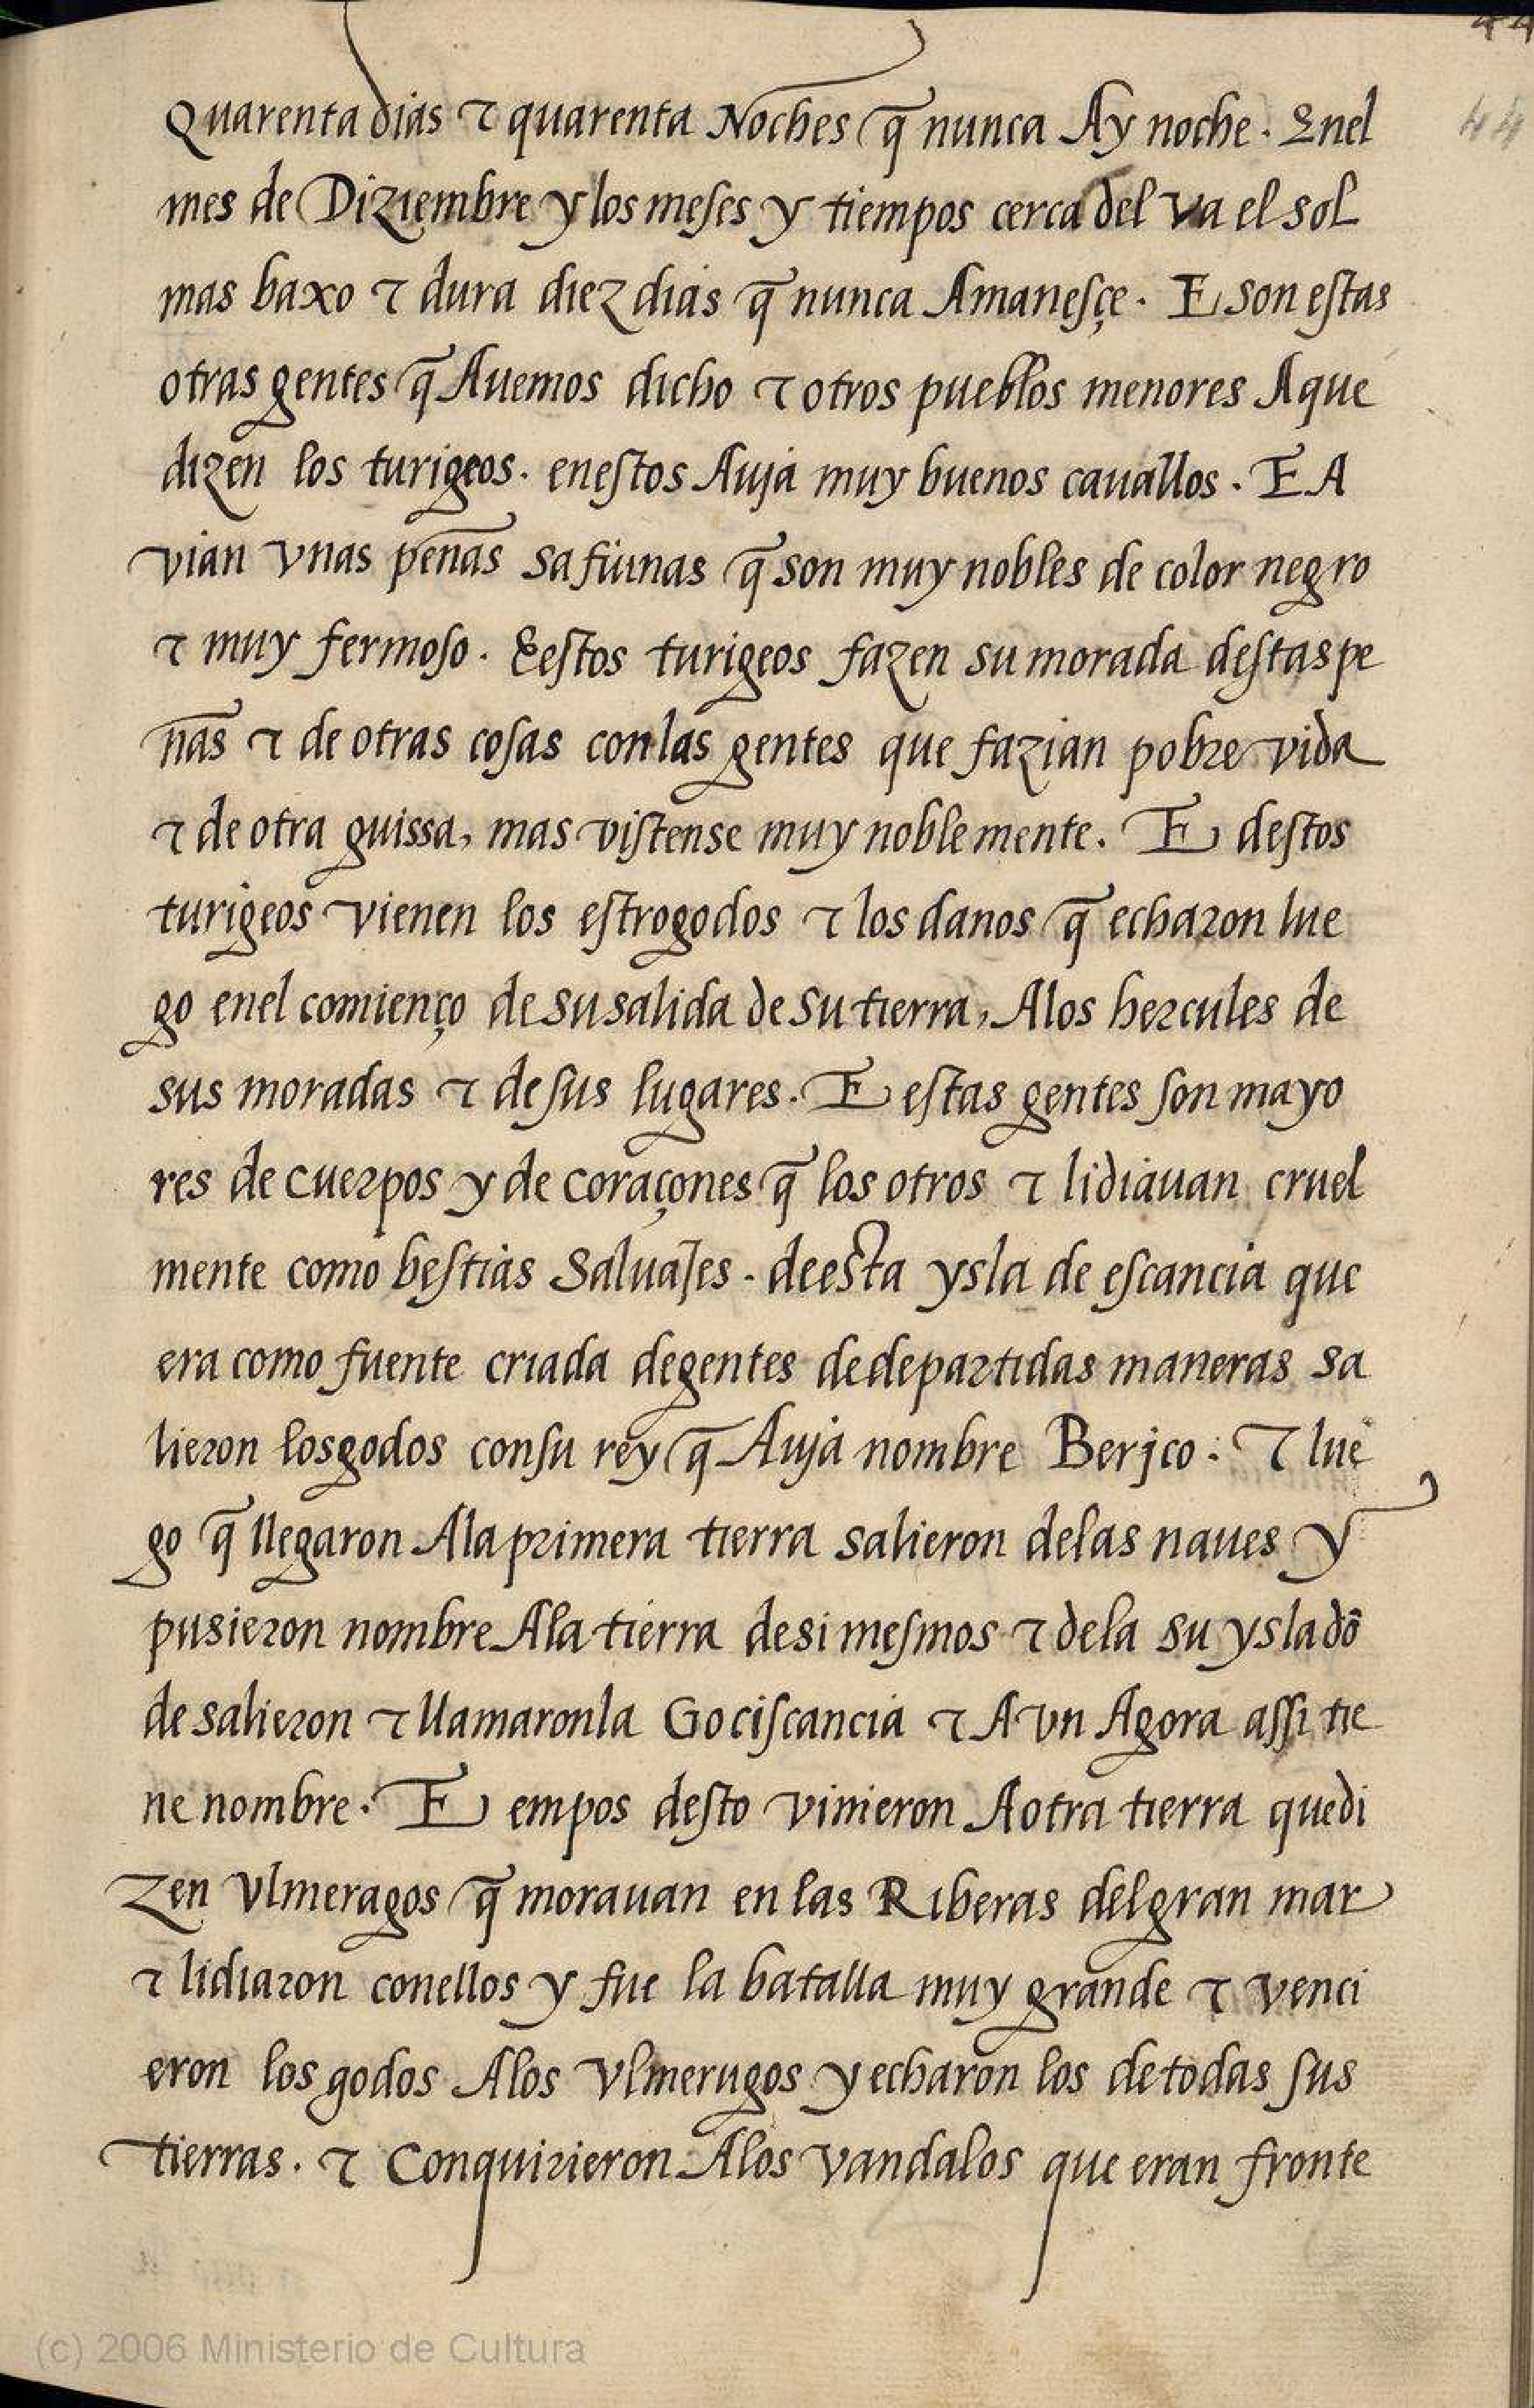 44
44
Quarenta dias ⁊ quarenta Noches q̄ nunca Ay noche. Enel
mes de Diziembre y los meſes y tiempos cerca del va el sol
mas baxo ⁊ dura diez dias q̄ nunca Amaneſçe. E son eſtas
otras gentes q̄ Auemos dicho ⁊ otros pueblos menores Aque
dizen los turigeos. eneſtos Auja muy buenos cauallos. E A
vian vnas penas̄ safiirnas q̄ son muy nobles de color negro
⁊ muy fermoſo. E eſtos turigeos fazen su morada deſtas pe
n̄as ⁊ de otras coſas con las gentes que fazian pobre vida
⁊ de otra guissa, mas viſtense muy noble mente. E deſtos
turigeos vienen los eſtrogodos ⁊ los danos q̄ echaron lue
go enel comienço de su salida de su tierra, Alos hercules de
sus moradas ⁊ de ſus lugares. E eſtas gentes ſon mayo
res de cuerpos y de coraçones q̄ los otros ⁊ lidiauan cruel
mente como beſtias Saluajes. de esta ysla de eſcancia que
era como fuente criada de gentes de departidas maneras sa
lieron los godos con ſu rey q̄ Auja nombre Berjco: ⁊ lue
go q̄ llegaron Ala primera tierra salieron delas naues y
pusieron nombre Ala tierra de si meſmos ⁊ dela su ysla dō
de salieron ⁊ llamaronla Gociſcancia ⁊ A vn Agora aſſi tie
ne nombre. E empos deſto vinieron A otra tierra que di
zen vlmeragos q̄ morauan en las Riberas del gran mar
⁊ lidiaron con ellos y fue la batalla muy grande ⁊ venci
eron los godos Alos vlmerugos y echaron los de todas ſus
tierras. ⁊ Conquirieron Alos vandalos que eran fronte
(c) 2006 Ministerio de Cultura